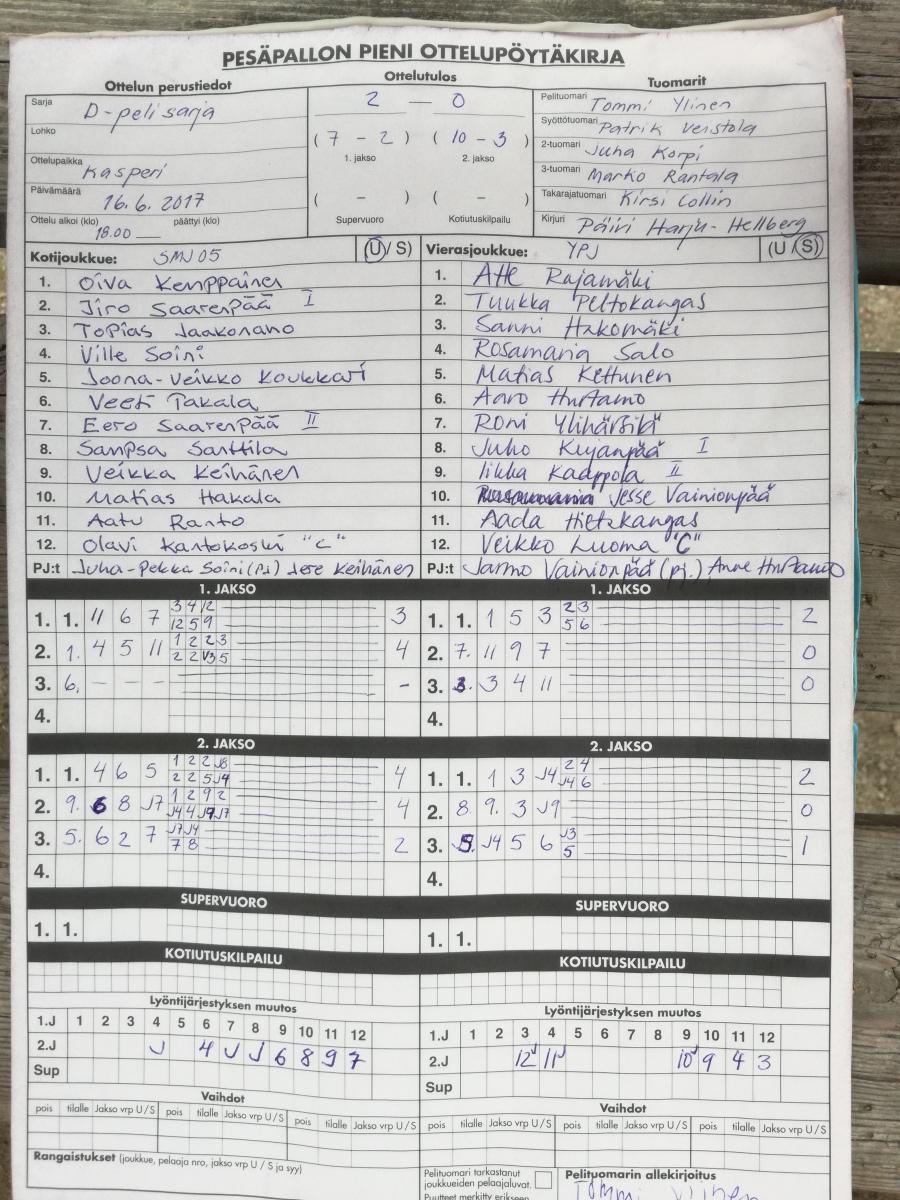 PESÄPALLON PIENI OTTELUPÖYTÄKIRJA
Ottelun perustiedot
Ottelutulos
Tuomarit
Sarja D-pelisarja
Lohko
Ottelupaikka Kasperi
Päivämäärä 16.6.2017
Ottelu alkoi (klo) päättyi (klo)
18.00
2 — 0
( 7 - 2 ) ( 10 - 3 )
1. jakso 2. jakso
( - ) ( - )
Supervuoro Kotiutuskilpailu
Pelituomari Tommi Ylinen
Syöttötuomari Patrik Veistola
2-tuomari Juha Korpi
3-tuomari Marko Rantala
Takarajatuomari Kirsi Collin
Kirjuri Päivi Harju-Hellberg
Kotijoukkue: SMJ 05 (U/S)
1. Oiva Kemppainen
2. Jiro Saarenpää I
3. Topias Jaakonaho
4. Ville Soini
5. Joona-Veikko Koukkari
6. Veeti Takala
7. Eero Saarenpää II
8. Sampsa Santtila
9. Veikka Keihänen
10. Matias Hakala
11. Aatu Ranto
12. Olavi Kantokoski "C"
PJ:t Juha-Pekka Soini (PJ) Jere Keihänen
Vierasjoukkue: YPJ (U/S)
1. Atte Rajamäki
2. Tuukka Peltokangas
3. Sanni Hakomäki
4. Rosamaria Salo
5. Matias Kettunen
6. Aaro Huhtamo
7. Roni Ylihärsilä
8. Juho Kujanpää I
9. Iikka Kaappola II
10. Jesse Vainionpää
11. Aada Hietakangas
12. Veikko Luoma "C"
PJ:t Jarmo Vainionpää (pj.), Anne Huhtamo
1. JAKSO
1. 1. 11 6 7 3 4 12 3
12 5 9
2. 1. 4 5 11 1 2 2 3 4
2 2 V3 5
3. 6. — — — -
4.
1. JAKSO
1. 1. 1 5 3 2 3 2
5 6
2. 7. 11 9 7 0
3. 3. 3 4 11 0
4.
2. JAKSO
1. 1. 4 6 5 1 2 2 J8 4
2 2 5 J4
2. 9. 6 8 J7 1 2 9 2 4
J4 4 J9 J7
3. 5. 6 2 7 J7 J4 2
7 8
4.
2. JAKSO
1. 1. 1 3 J4 2 4 2
J4 6
2. 8. 9. 3 J9 0
3. 5. J4 5 6 J3 1
5
4.
SUPERVUORO
1. 1.
SUPERVUORO
1. 1.
KOTIUTUSKILPAILU
KOTIUTUSKILPAILU
Lyöntijärjestyksen muutos
1.J 1 2 3 4 5 6 7 8 9 10 11 12
2.J J 4 J J 6 8 9 7
Sup
Lyöntijärjestyksen muutos
1.J 1 2 3 4 5 6 7 8 9 10 11 12
2.J 12J 11J 10J 9 4 3
Sup
Vaihdot
pois tilalle Jakso vrp U/S pois tilalle Jakso vrp U/S pois tilalle Jakso vrp U/S
Vaihdot
pois tilalle Jakso vrp U/S pois tilalle Jakso vrp U/S pois tilalle Jakso vrp U/S
Rangaistukset (joukkue, pelaaja nro, jakso vrp U / S ja syy)
Pelituomari tarkastanut
joukkueiden pelaajaluvat.
Puutteet merkitty erikseen
Pelituomarin allekirjoitus
Tommi Ylinen